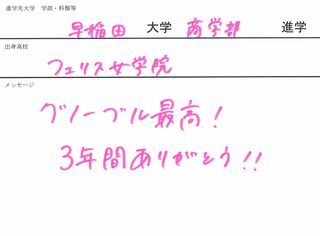 進学先大学 学部・科類等
早稲田 大学 商学部 進学
出身高校
フェリス女学院
メッセージ
グノーブル最高!
3年間ありがとう!!